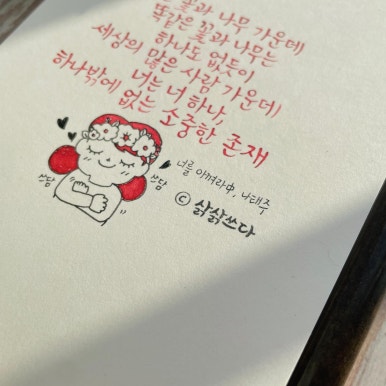 꽃과 나무 가운데
똑같은 꽃과 나무는
하나도 없듯이
세상의 많은 사람 가운데
너는 너 하나,
하나밖에 없는 소중한 존재
너를 아껴라 中, 나태주
쓰담
쓰담
ⓒ 삵삵쓰다